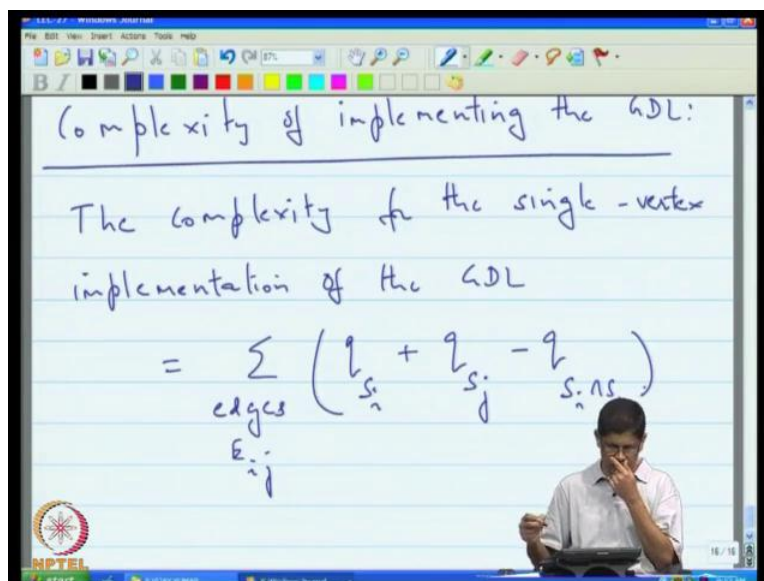 LEC-27 - Windows Journal
File Edit View Insert Actions Tools Help
87%
B I
Complexity of implementing the GDL:
The complexity for the single-vertex
implementation of the GDL
= Σ ( q_{S_i} + q_{S_j} - q_{S_i ∩ S
edges
E_{ij}
NPTEL
16/16
start